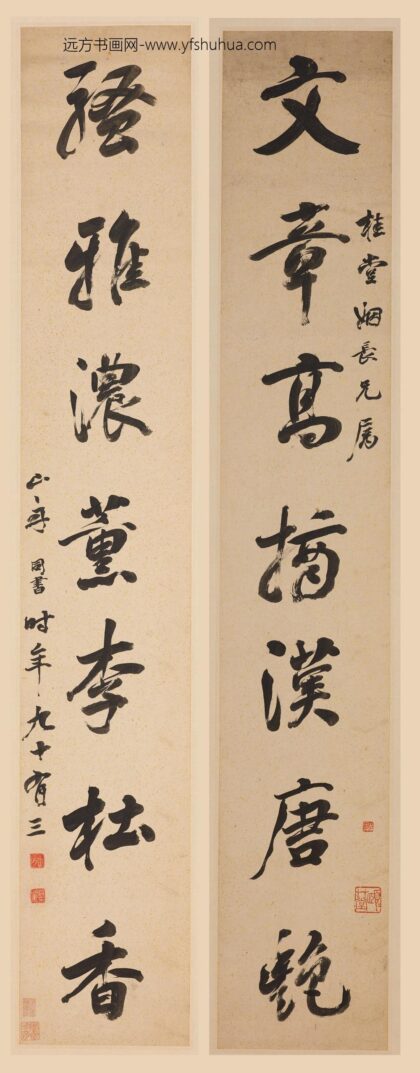 远方书画网-www.yfshuhua.com
桂堂姻長兄属
文章高摘漢唐艷
騷雅濃薰李杜香
山舟同書时年九十有三